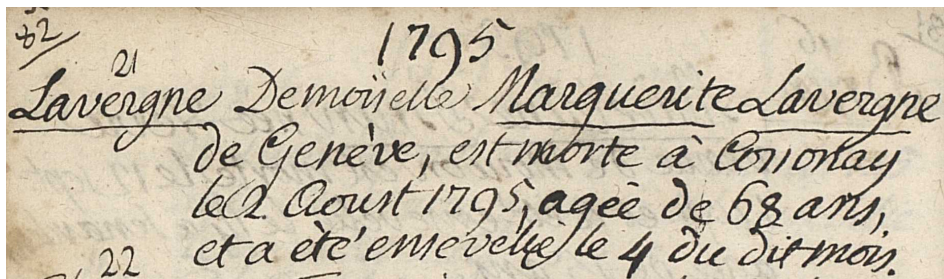 82
1795
21
Lavergne Demoiselle Marguerite Lavergne
de Genève, est morte à Cossonay
le 2 Aoust 1795, agée de 68 ans,
et a été ensevelie le 4 du dit mois.
22